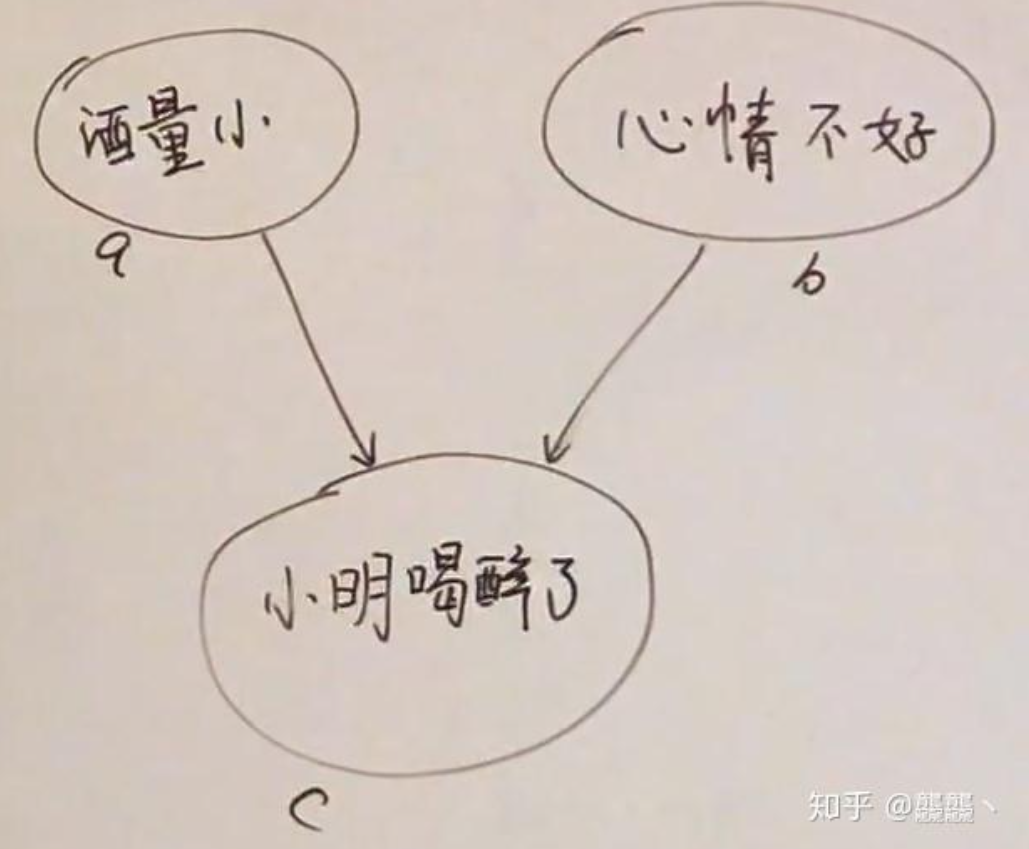 酒量小
心情不好
a
b
小明喝醉了
c
知乎 @龑龑丶